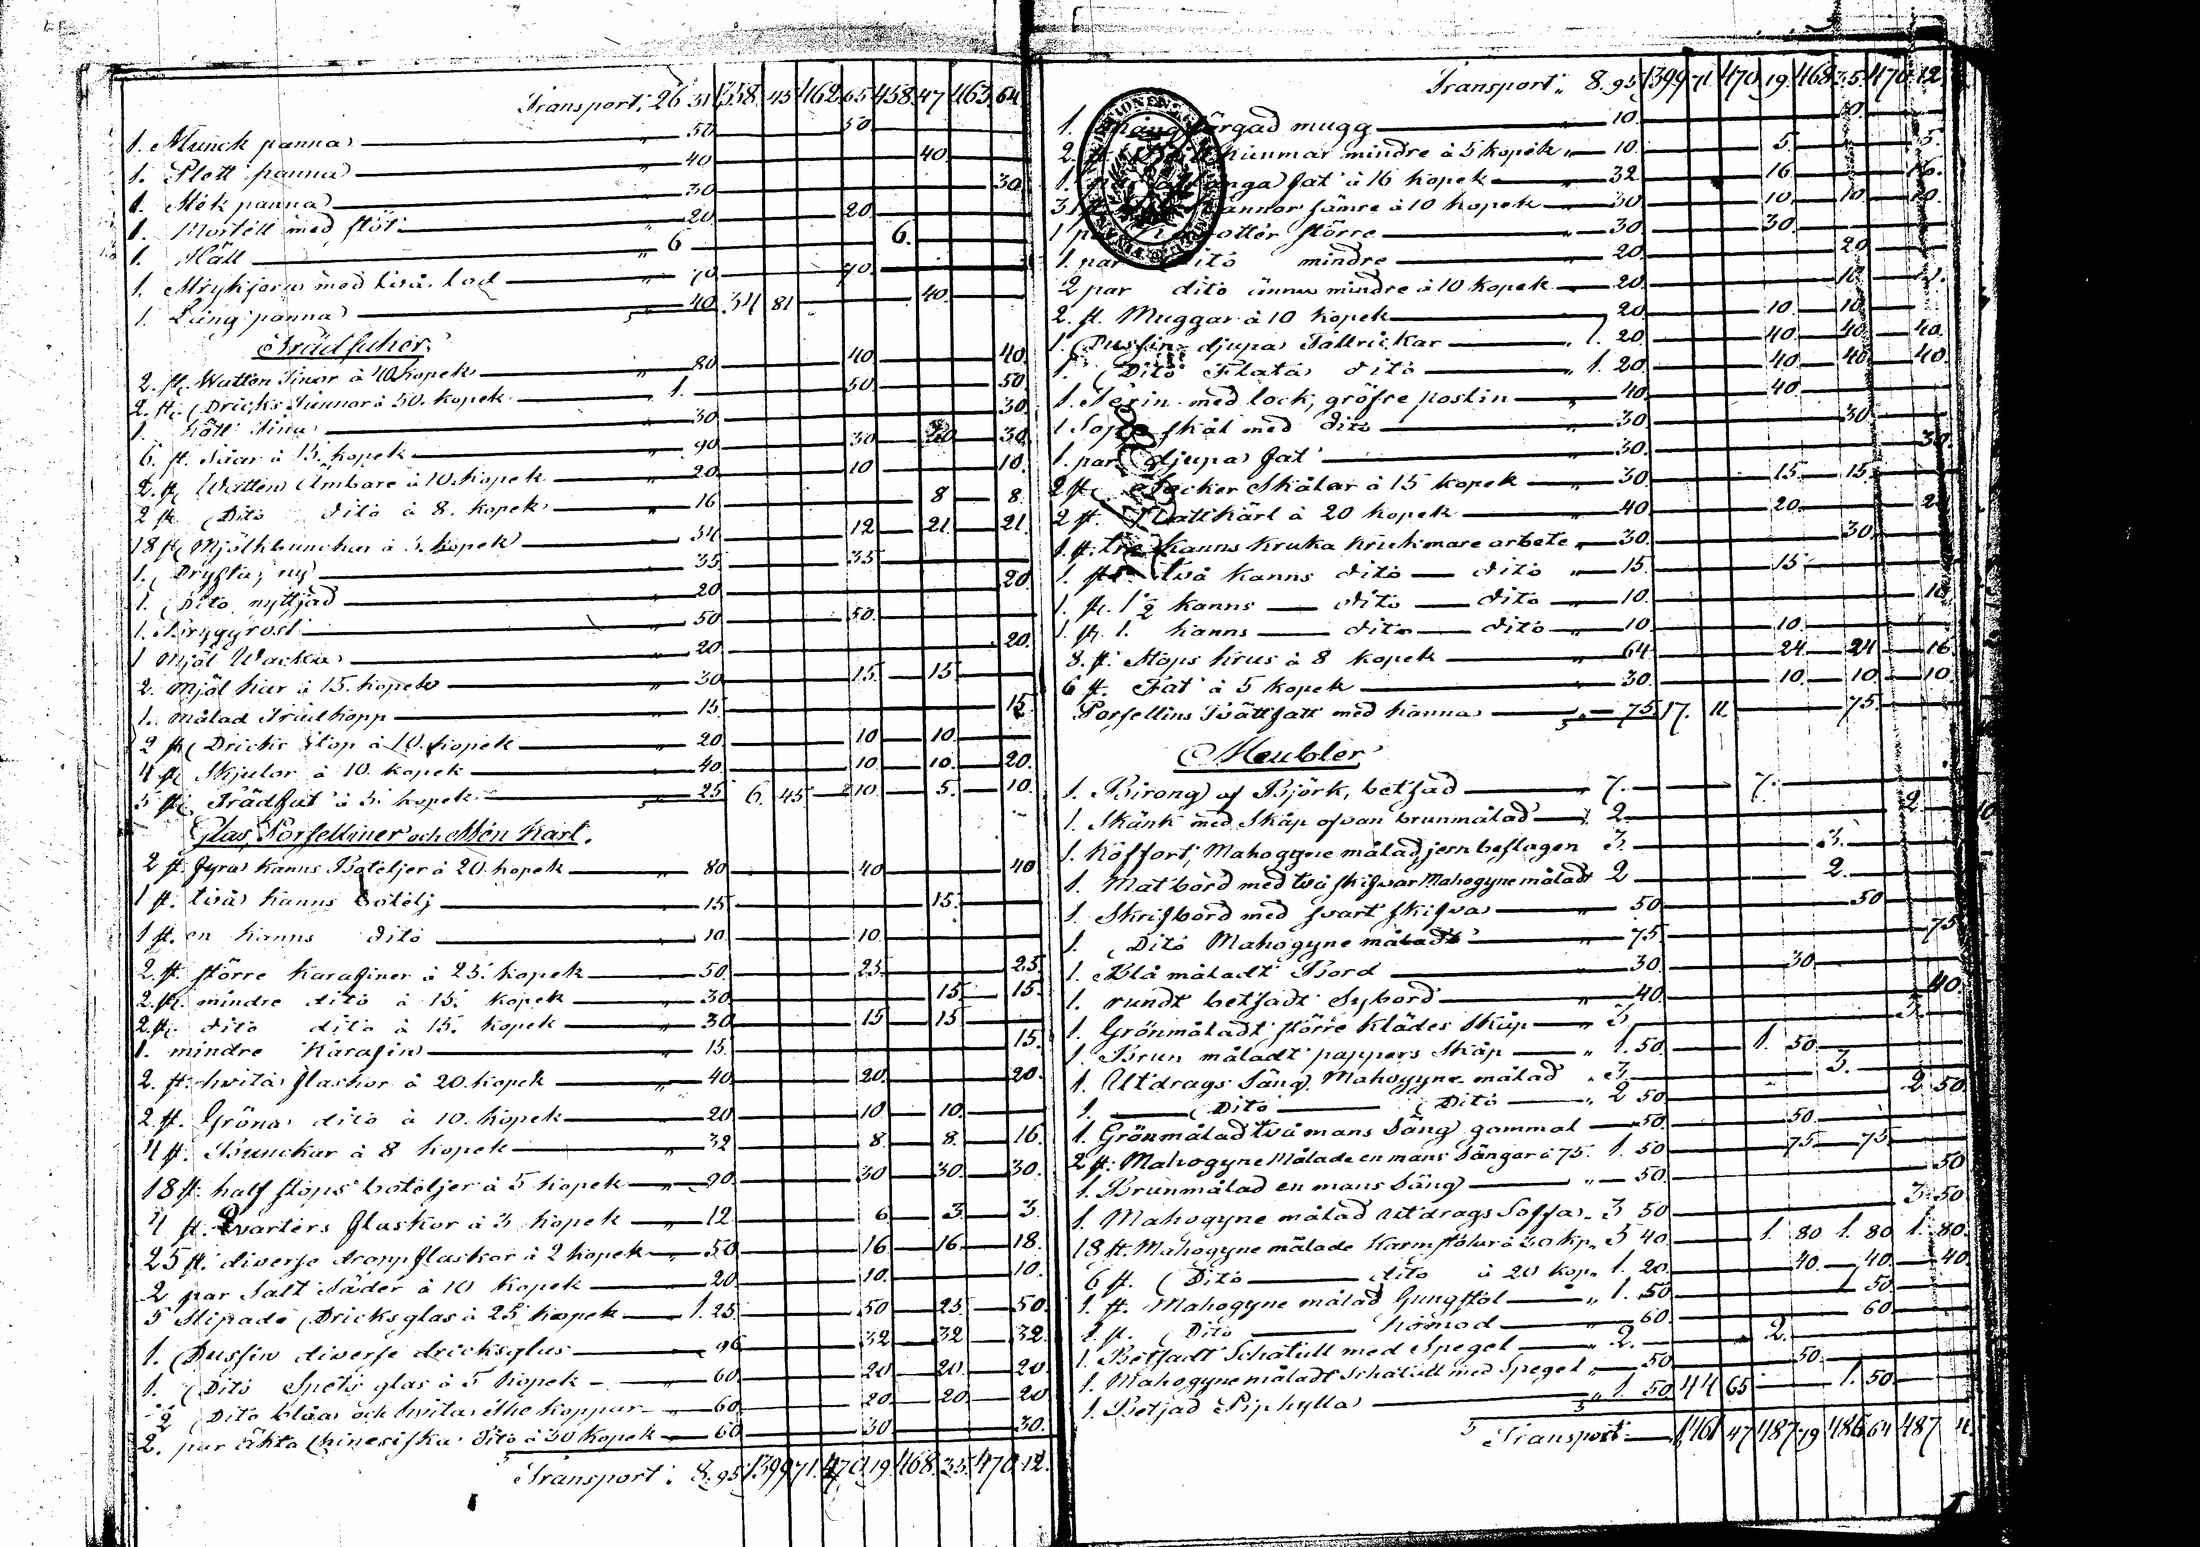 Transport: 26 31 1358. 45 462. 65 458. 47 463. 64
1. Munck panna „ 50 50
1. Plett panna „ 40 40
1. Stek panna „ 30 30
1. Mortell med stöt „ 20 20
1. Häll „ 6 6.
1. Strykjern med två lod „ 70 70
1. Lång panna „ 40 34 81 40
Trädsaker:
2. st. Watten Tinor à 40 kopek „ 80 40 40
2. st. Dricks Tunnor à 50. kopek 1. 50 50
1. Kött Tina 30 30
6. st. Såar à 15. kopek „ 90 30 30
2. st. Watten Ämbare à 10. kopek „ 20 10 10.
2 st. Dito dito à 8. kopek „ 16 8 8
18 st. Mjölkbunckar à 3. kopek „ 54 12 21 21
1. Dryfta, ny „ 35 35
1. Dito, nyttjad „ 20 20
1. Bryggrost „ 50 50.
1 Mjöl Wacka „ 20 20.
2. Mjöl kar à 15. kopek „ 30 15 15
1. målad Träd kopp „ 15 15
2 st. Dricks Stop à 10. kopek „ 20 10 10.
4 st. Skjulor à 10. kopek „ 40 10 10. 20.
5 st. Trädfat à 5. kopek 25 6. 45 10 5. 10.
Glas, Porselliner och Sten Kärl.
2 st. fyra kanns Boteljer à 20 kopek „ 80 40 40
1 st. två kanns botelj „ 15 15.
1 st. en kanns dito „ 10 10.
2. st. större karafiner à 25. kopek „ 50 25 25.
2. st. mindre dito à 15. kopek „ 30 15 15.
2. st. dito dito à 15. kopek „ 30 15 15
1. mindre Karafin „ 15 15.
2. st. hvita flaskor à 20. kopek „ 40 20. 20.
2 st. Gröna dito à 10. kopek 20 10 10.
4 st. Bunckar à 8 kopek „ 32 8. 8. 16.
18 st. half stops boteljer à 5 kopek „ 90 30 30. 30.
4 st. Qvarters flaskor à 3 kopek „ 12 6 3. 3.
25 st. diverse droppflaskor à 2 kopek „ 50 16 16. 18.
2 par Salt Säder à 10 kopek 20 10. 10.
5 Slipade Dricksglas à 25 kopek 1. 25. 50 25 50
1. Dussin diverse dricksglas „ 96 32 32 32.
1. Dito Spets glas à 5 kopek „ 60 20 20. 20
½ Dito blåa och hvita The koppar „ 60. 20 20 20
2. par äkta Chinesiska dito à 30 kopek 60 30 30.
Transport: 8. 95 1399 71. 470 19 468. 35. 470. 12.
Transport: 8. 95 1399 71. 470. 19. 468. 35. 470. 12.
1. färgad mugg „ 10. 10
2. st. mindre à 5 kopek „ 10 5. 5.
1. långa fat à 16 kopek „ 32 16 16.
3. kannor sämre à 10 kopek „ 30 10. 10 10.
1 par potter större „ 30 30.
1. par dito mindre „ 20. 20
2 par dito ännu mindre à 10 kopek „ 20. 10
2. st. Muggar à 10 kopek „ 20 10 10
1. Dussin djupa Tallrickar „ 1. 20. 40. 40 40.
1. Dito Flata dito „ 1. 20. 40 40 40.
1. Terin med lock, gröfre postin „ 40 40.
1 Sopp skål med dito „ 30 30.
1. par djupa fat „ 30. 30.
2 st. Socker Skålar à 15 kopek „ 30 15 15.
2 st. Wattkärl à 20 kopek „ 40 20.
1. st. tre Kanns Kruka Kruckmare arbete „ 30. 30.
1. st. två kanns dito dito „ 15. 15
1. st. 1½ kanns dito dito „ 10.
1 st. 1. kanns dito dito „ 10 10.
8. st. Stops krus à 8 kopek „ 64 24 24 16
6 st. Fat à 5 kopek „ 30. 10. 10 10
Porsellins Tvättfatt med kanna „ 75 17. 11. 75.
Meubler
1. Birong af Björk, betsad „ 7. 7.
1. Skänk med Skåp ofvan brunmålad „ 2. 2
1. Koffort, Mahogyne målad, jernbeslagen 3. 3.
1. Matbord med två skifvor Mahogyne måladt 2 2.
1. Skrifbord med svart skifva „ 50 50
1. Dito Mahogyne måladt „ 75. 75
1. Blå måladt Bord „ 30 30
1. rundt betsadt Sybord „ 40. 40.
1. Grönmåladt större Klädes Skåp „ 3 3.
1. Brun måladt pappers Skåp „ 1. 50. 1. 50.
1. Utdrags Säng, Mahogyne målad „ 3 3.
1. Dito Dito „ 2 50 2 50
1. Grönmålad två mans Säng gammal „ 50. 50.
2 st. Mahogyne Målade en mans Sängar à 75. 1. 50 75 75
1. Brunmålad en mans Säng „ 50. 50
1. Mahogyne målad utdrags Soffa „ 3 50 3 50.
18 st. Mahogyne målade Karmstolar à 30 kp. 5 40 1. 80 1. 80 1. 80.
6 st. Dito dito à 20 kop. 1. 20. 40. 40. 40
1. st. Mahogyne målad Gungstol „ 1. 50 1 50.
1. st. Dito Komod 60. 60
1. Betsadt Schatull med Spegel „ 2. 2.
1. Mahogyne måladt Schatull med Spegel „ 50 50.
1. Betsad Piphylla „ 1. 50 44 65 1. 50.
Transport 1461 47 487. 19 486 64 487 11.